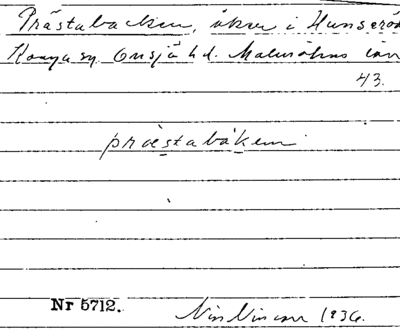 Prästabacken, åker i Hunserö
Konga sn. Onsjö hd. Malmöhus län
43.
præstabákem
Nr 5712.
Nils Nilsson 1936.